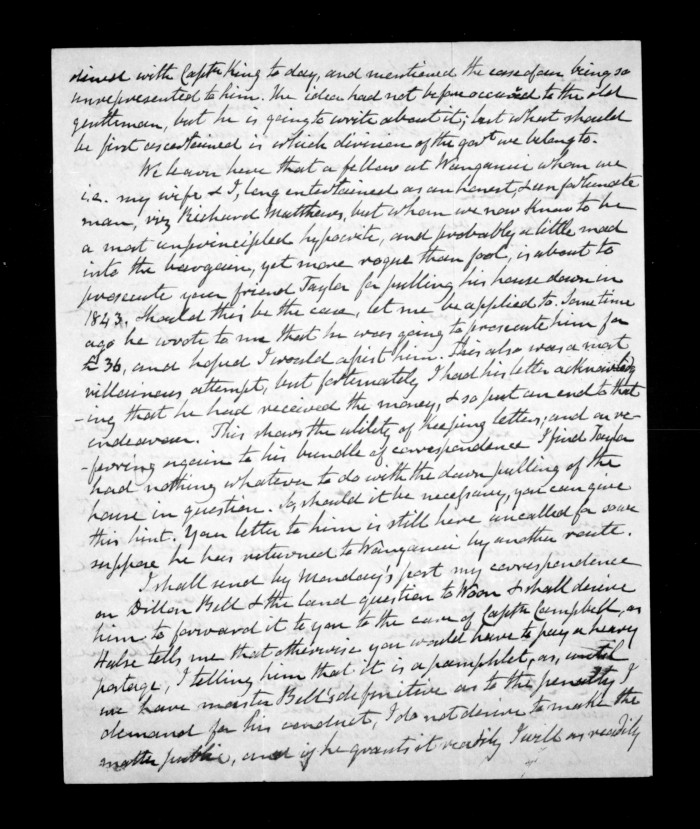 dined with Captn King to day, and mentioned the case of our being so
unrepresented to him. The idea had not before occurred to the old
gentleman, but he is going to write about it; but what should
be first ascertained is which division of the govt we belong to.
We learn here that a fellow at Wanganui whom we
i.e. my wife & I, long entertained as an honest, & unfortunate
man, viz Richard Matthews, but whom we now know to be
a most unprincipled hypocrite, and probably a little mad
into the bargain, yet more rogue than fool, is about to
prosecute your friend Taylor for pulling his house down in
1843, should this be the case, let me be applied to. Sometime
ago he wrote to me that he was going to prosecute him for
£36, and hoped I would assist him. This also was a most
villainous attempt, but fortunately I had his letter acknowledg
-ing that he had received the money, & so put an end to that
endeavour. This shows the utility of keeping letters; and on re-
-ferring again to his bundle of correspondence I find Taylor
had nothing whatever to do with the down pulling of the
house in question. So should it be necessary, you can give
this hint. Your letter to him is still here uncalled for so we
suppose he has returned to Wanganui by another route.
I shall send by Monday's post my correspondence
on Dillon Bell & the land question to Woon & shall desire
him to forward it to you to the care of Captn Campbell, as
Halse tells me that otherwise you would have to pay a heavy
postage, I telling him that it is a pamphlet, as, until
we have master Bell's definitive as to the penalty I
demand for his conduct, I do not desire to make the
matter public, and if he grants it readily I will as readily